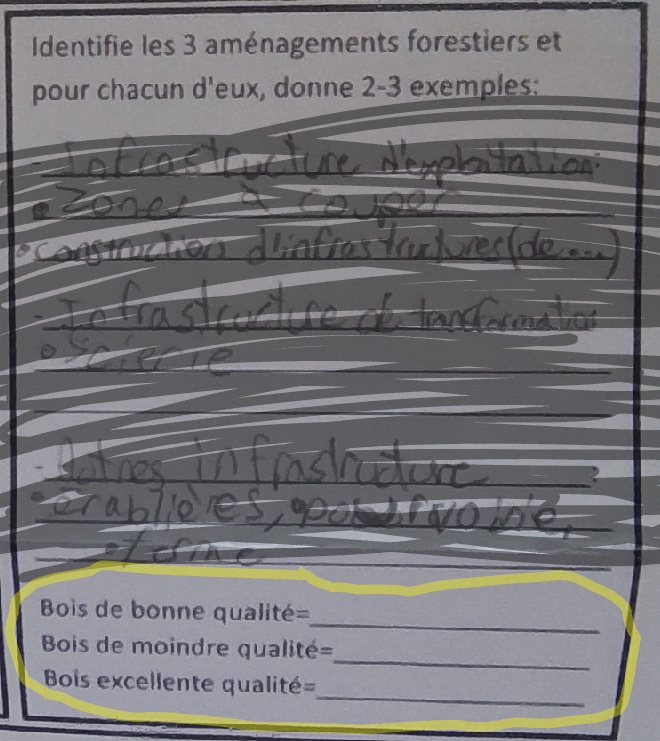 Identifie les 3 aménagements forestiers et
pour chacun d'eux, donne 2-3 exemples:
- Infrastructure d'exploitation:
• Zones à couper
• construction d'infrastructures (de...)
- Infrastructure de transformation
• Scierie
- Autres infrastructure :
• érablières, pourvoirie,
Bois de bonne qualité=
Bois de moindre qualité=
Bois excellente qualité=